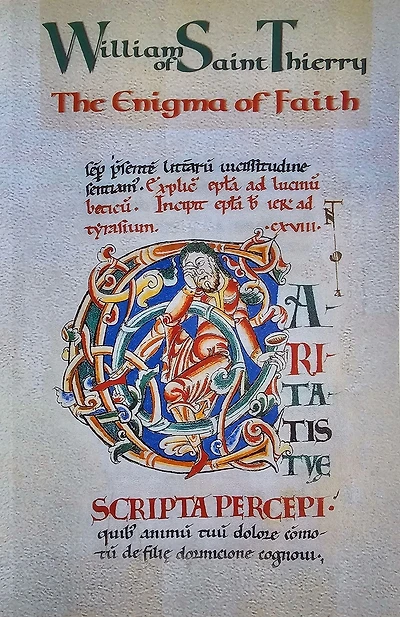 William of Saint Thierry
The Enigma of Faith
sep̄ p̄sentē litt̄arū uicissitudine
sentiam. Explic̄ ep̄la ad lucinū
beticū. Incipit ep̄la b̄ ier̄ ad
tyrasium. .cxviii.
CARITATIS TVE
SCRIPTA PERCEPI.
quib; animū tuū dolore cōmo-
tū de filię dormicione cognoui.